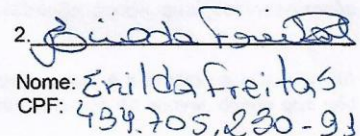 2. Enilda Freitas
Nome: Enilda Freitas
CPF: 434.705.230-91